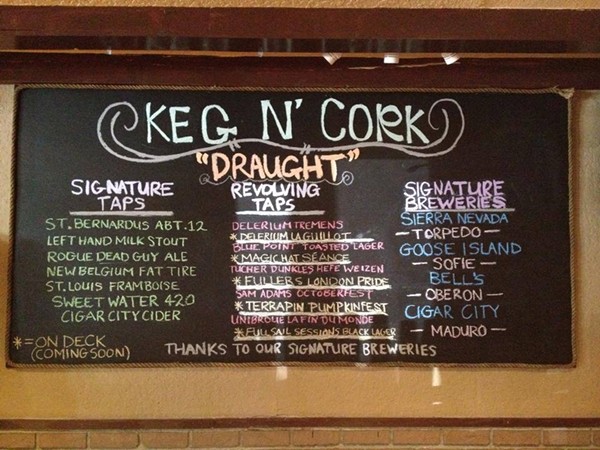 KEG N' CORK
"DRAUGHT"
SIGNATURE
TAPS
ST. BERNARDUS ABT. 12
LEFT HAND MILK STOUT
ROGUE DEAD GUY ALE
NEW BELGIUM FAT TIRE
ST. LOUIS FRAMBOISE
SWEET WATER 420
CIGAR CITY CIDER
REVOLVING
TAPS
DELERIUM TREMENS
* DELERIUM LAGUILLOT
BLUE POINT TOASTED LAGER
* MAGIC HAT SÉANCE
TUCHER DUNKLES HEFE WEIZEN
* FULLERS LONDON PRIDE
SAM ADAMS OCTOBERFEST
* TERRAPIN PUMPKINFEST
UNIBROUE LA FIN DU MONDE
* FULL SAIL SESSIONS BLACK LAGER
SIGNATURE
BREWERIES
SIERRA NEVADA
— TORPEDO —
GOOSE ISLAND
— SOFIE —
BELL'S
— OBERON —
CIGAR CITY
— MADURO —
* = ON DECK
(COMING SOON)
THANKS TO OUR SIGNATURE BREWERIES